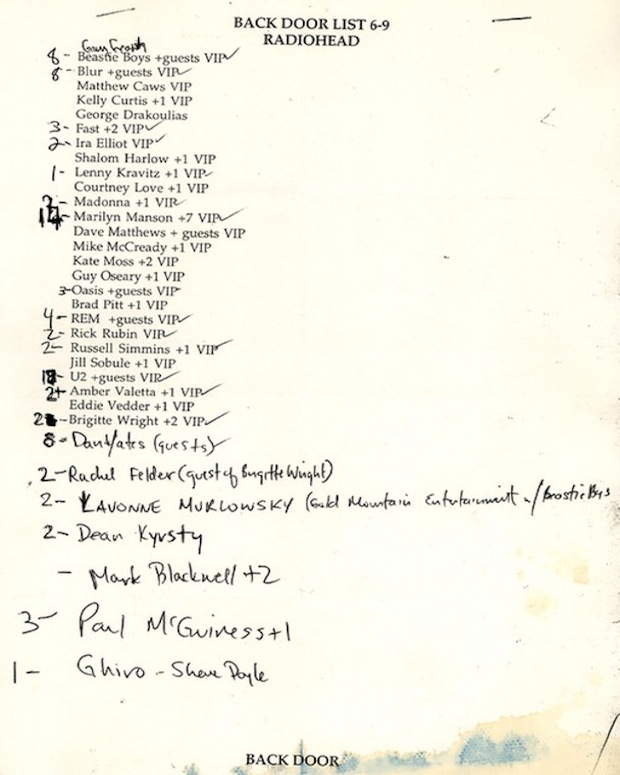 BACK DOOR LIST 6-9
RADIOHEAD
8- Beastie Boys +guests VIP✓
8- Blur +guests VIP✓
Matthew Caws VIP
Kelly Curtis +1 VIP
George Drakoulias
3- Fast +2 VIP✓
2- Ira Elliot VIP✓
Shalom Harlow +1 VIP
1- Lenny Kravitz +1 VIP✓
Courtney Love +1 VIP
2- Madonna +1 VIP✓
Marilyn Manson +7 VIP✓
Dave Matthews + guests VIP
Mike McCready +1 VIP
Kate Moss +2 VIP
Guy Oseary +1 VIP
3-Oasis +guests VIP
Brad Pitt +1 VIP
4- REM +guests VIP✓
2- Rick Rubin VIP✓
2- Russell Simmins +1 VIP✓
Jill Sobule +1 VIP
U2 +guests VIP✓
Amber Valetta +1 VIP✓
Eddie Vedder +1 VIP
Brigitte Wright +2 VIP✓
8- (guests)✓
2-Rachel Felder (guest of Brigitte Wright)
2- LAVONNE MURLOWSKY (Gold Mountain Entertainment w/Beastie Boys
2- Dean Kyrsty
- Mark Blackwell +2
3- Paul McGuiness +1
1- Ghiro - Shane Doyle
BACK DOOR